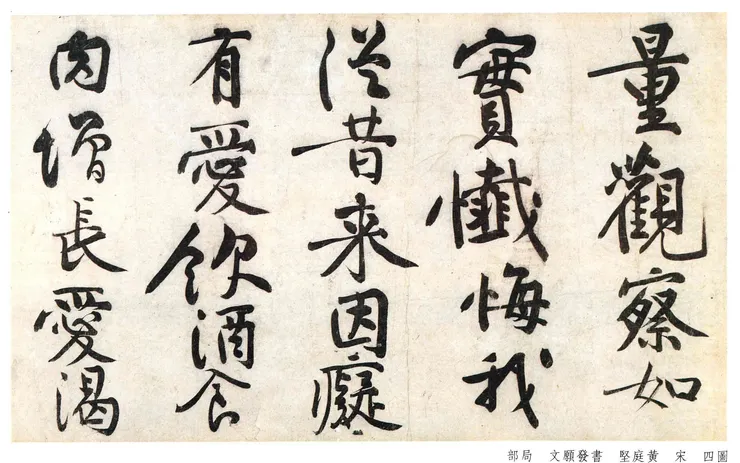 量觀察如
實懺悔我
從昔来因癡
有愛飲酒食
肉增長愛渴
圖四 宋 黃庭堅 書發願文 局部